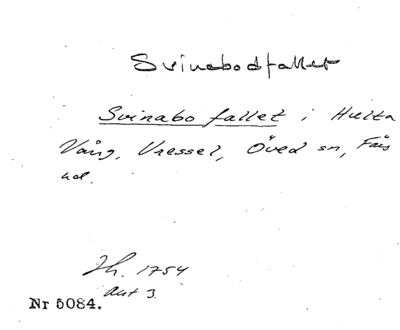 Svinabodfallet
Svinabo fallet i Hulta
Vång, Vressel, Öved sn, Färs
hd.
Jh. 1754
akt 3.
Nr 5084.